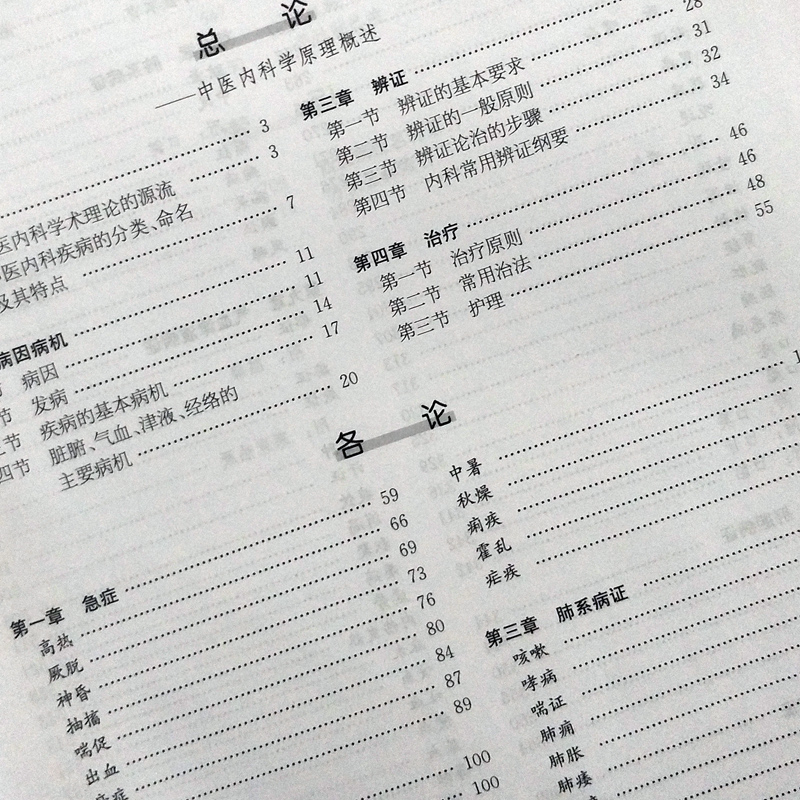 总 论
——中医内科学原理概述
3
医内科学术理论的源流 3
医内科疾病的分类、命名
及其特点 7
病因病机 11
节 病因 11
节 发病 14
节 疾病的基本病机 17
四节 脏腑、气血、津液、经络的
主要病机 20
第三章 辨证
第一节 辨证的基本要求 28
第二节 辨证的一般原则 31
第三节 辨证论治的步骤 32
第四节 内科常用辨证纲要 34
第四章 治疗 46
第一节 治疗原则 46
第二节 常用治法 48
第三节 护理 55
各 论
第一章 急症 59
高热 66
厥脱 69
神昏 73
抽搐 76
喘促 80
出血 84
87
89
100
100
中暑
秋燥
痢疾
霍乱
疟疾
第三章 肺系病证
咳嗽
哮病
喘证
肺痈
肺胀
肺痿